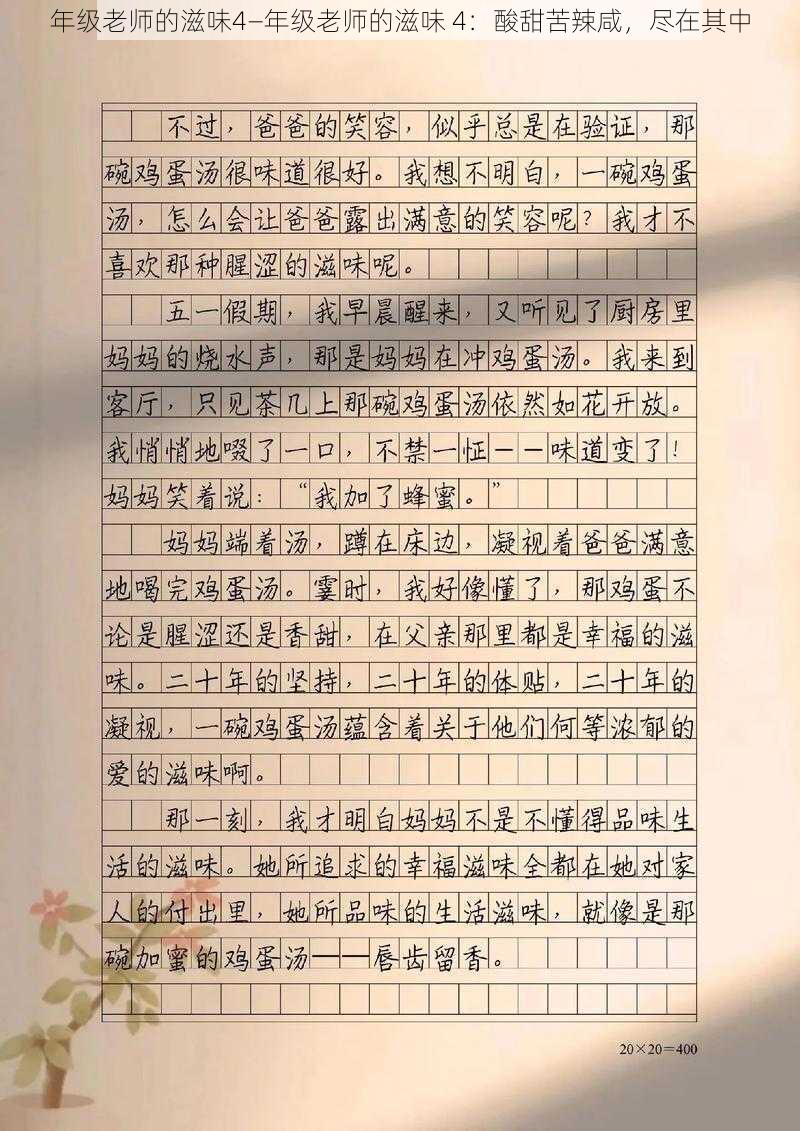 年级老师的滋味4—年级老师的滋味 4：酸甜苦辣咸，尽在其中
不过，爸爸的笑容，似乎总是在验证，那
碗鸡蛋汤很味道很好。我想不明白，一碗鸡蛋
汤，怎么会让爸爸露出满意的笑容呢？我才不
喜欢那种腥涩的滋味呢。
五一假期，我早晨醒来，又听见了厨房里
妈妈的烧水声，那是妈妈在冲鸡蛋汤。我来到
客厅，只见茶几上那碗鸡蛋汤依然如花开放。
我悄悄地啜了一口，不禁一怔——味道变了！
妈妈笑着说：“我加了蜂蜜。”
妈妈端着汤，蹲在床边，凝视着爸爸满意
地喝完鸡蛋汤。霎时，我好像懂了，那鸡蛋不
论是腥涩还是香甜，在父亲那里都是幸福的滋
味。二十年的坚持，二十年的体贴，二十年的
凝视，一碗鸡蛋汤蕴含着关于他们何等浓郁的
爱的滋味啊。
那一刻，我才明白妈妈不是不懂得品味生
活的滋味。她所追求的幸福滋味全都在她对家
人的付出里，她所品味的生活滋味，就像是那
碗加蜜的鸡蛋汤——唇齿留香。
20×20=400